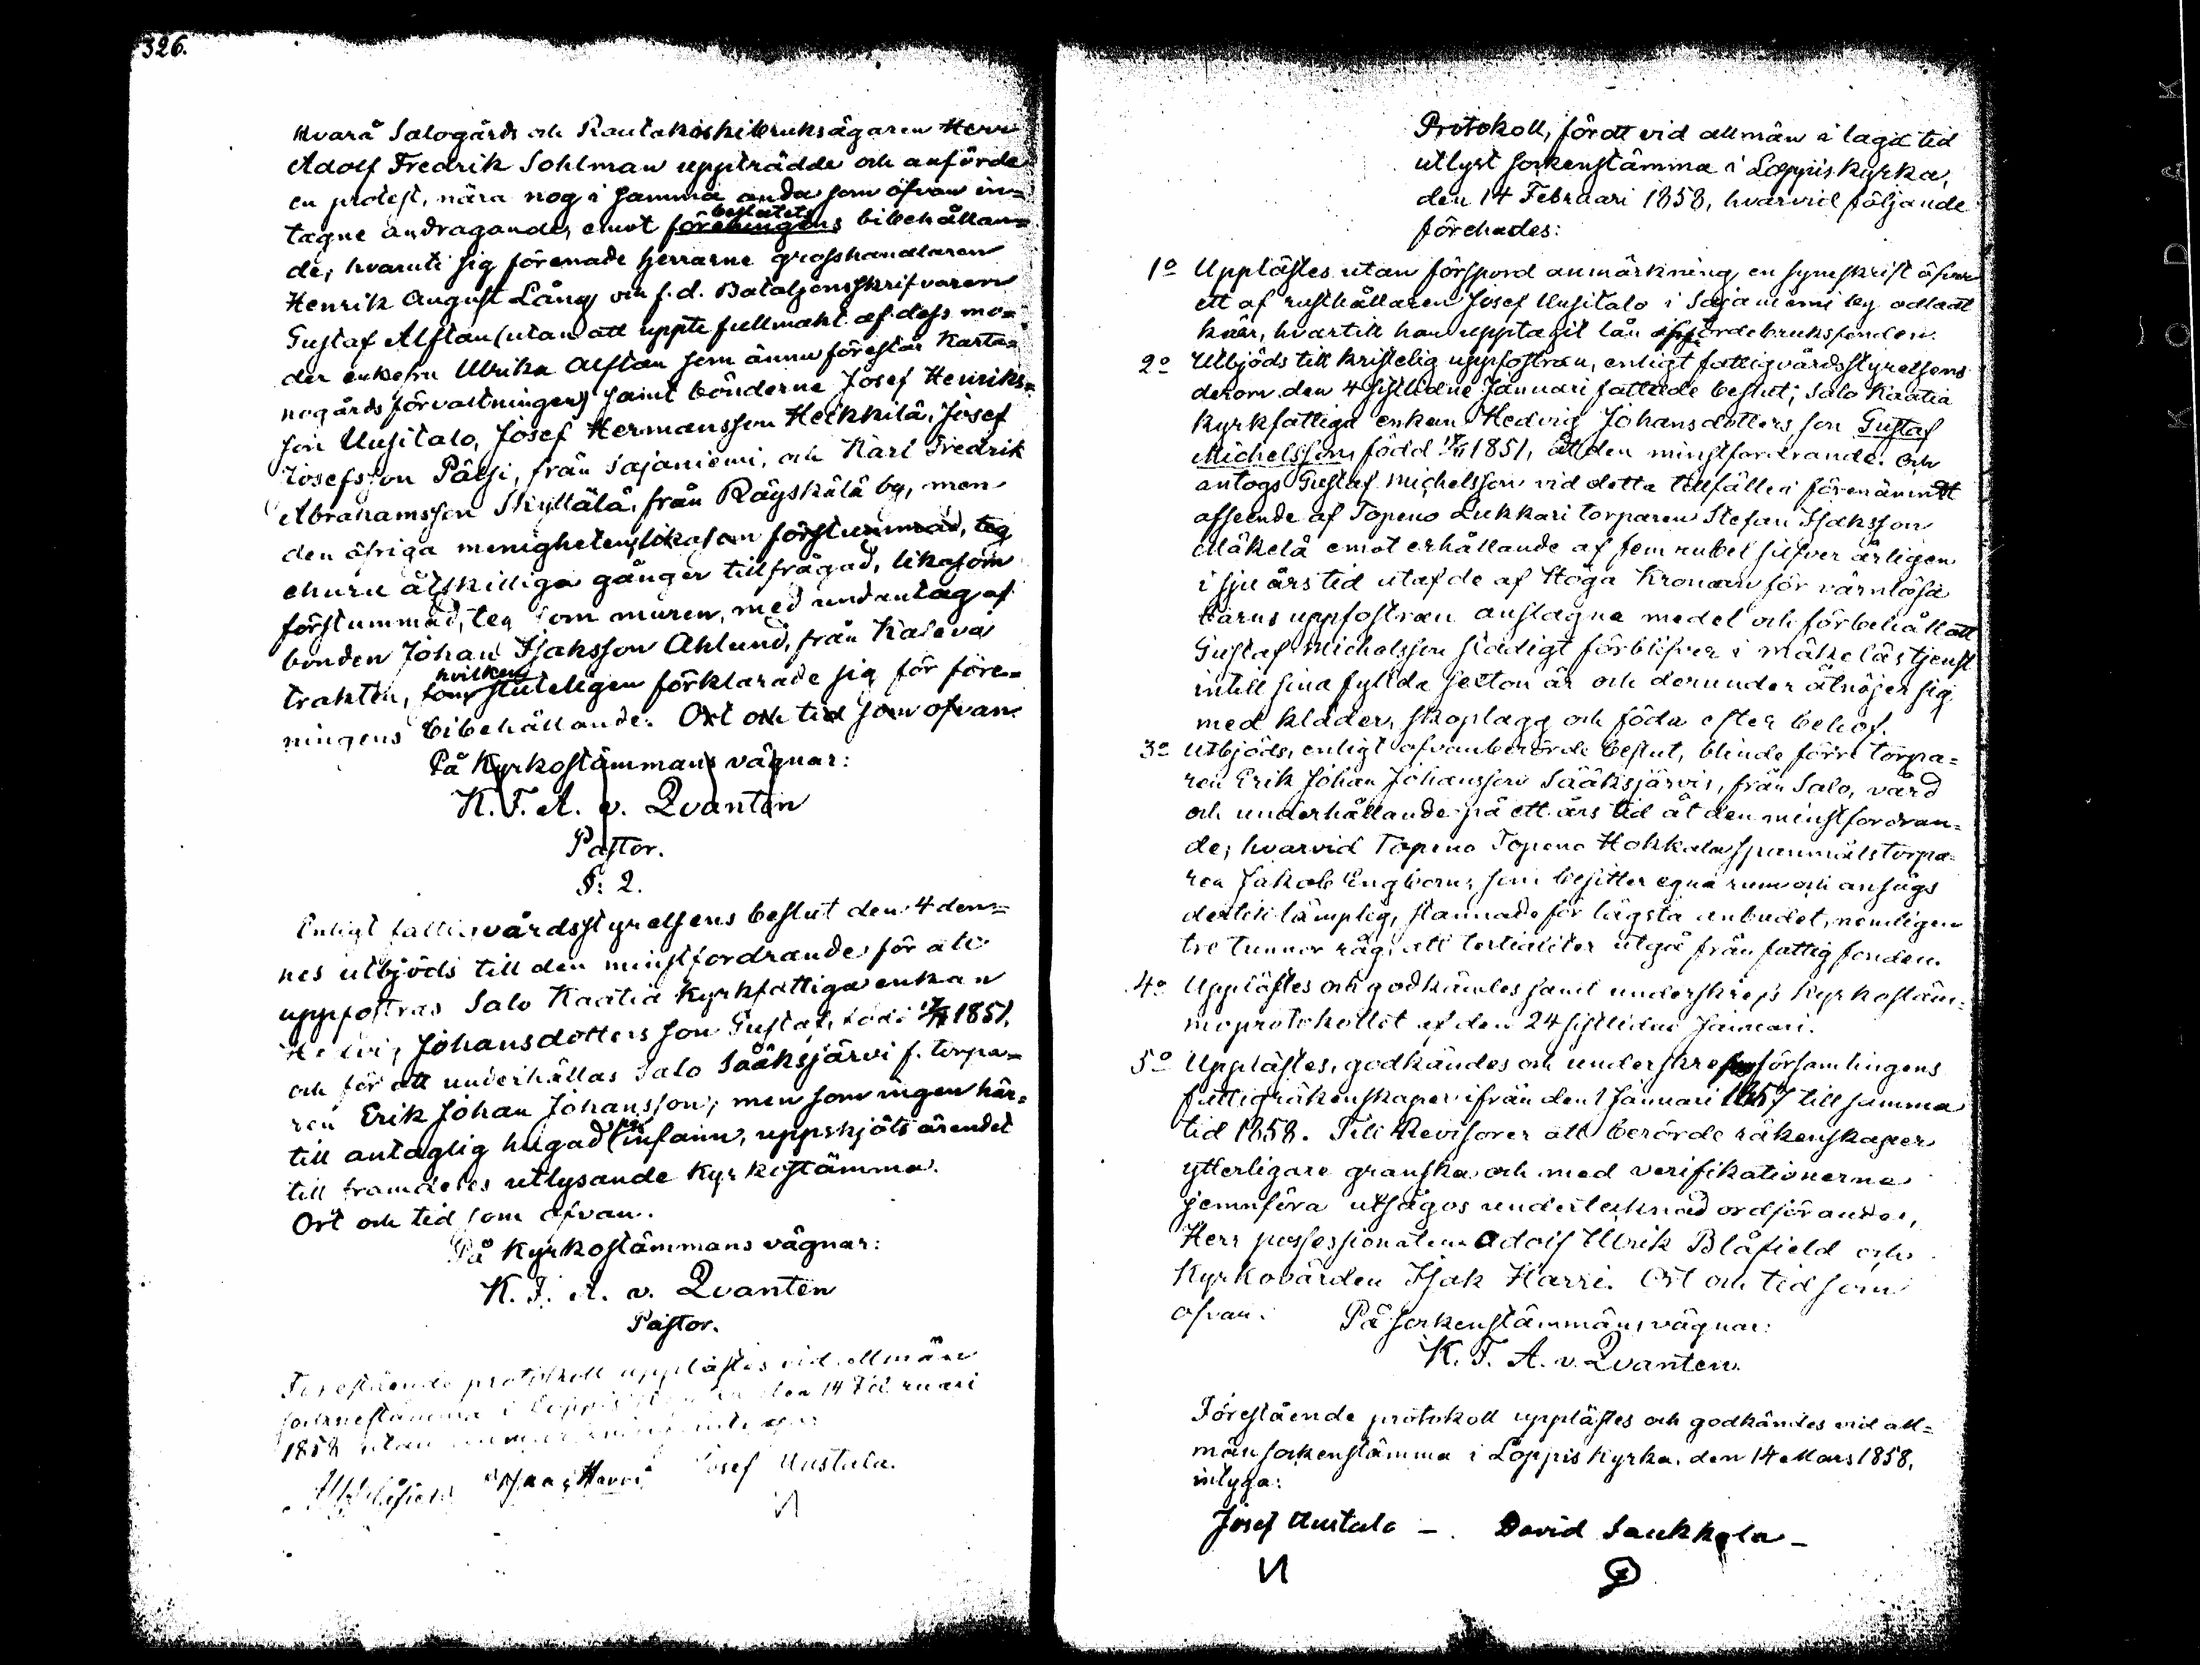 326.
Kvarå Salogårds och Rautakoskibruksägaren Herr
Adolf Fredrik Sohlman uppträdde och anförde
en protest, nära nog i samma anda som ofvan in=
tagne andragande, emot föreningens beslutets bibehållan=
de, hvaruti sig förenade herrarne grosshandlaren
Henrik August Lång och f.d. Bataljonsskrifvaren
Gustaf Alftan (utan att uppte fullmakt af dess mo=
der enkefru Ulrika Alftan som ännu förestår Karta=
nogårds förvaltningen) samt bönderne Josef Henriks=
son Uusitalo, Josef Hermansson Heikkilä, Josef
Josefsson Pälsi, från Sajaniemi, och Karl Fredrik
Abrahamsson Skyttälä, från Räyskälä by, men
den öfriga menigheten, likasom förstummad, teg
ehuru åtskilliga gånger tillfrågad, likasom
förstummad, teg som muren, med undantag af
bonden Johan Isaksson Ahlund, från Kaleva
trakten, som hvilken sluteligen förklarade sig för före=
ningens bibehållande. Ort och tid som ofvan
På Kyrkostämmans vägnar:
K. F. A. v. Qvanten
Pastor.
§: 2.
Enligt fattigvårdsstyrelsens beslut den 4 den=
nes utbjöds till den minstfordrande för att
uppfostras Salo Kaatia Kyrkfattiga enkan
Hedvig Johansdotters son Gustaf, född 1851,
och för att underhållas Salo Sääksjärvi f. torpa=
ren Erik Johan Johansson; men som ingen här=
till antaglig hugad sig infann, uppskjöts ärendet
till framdeles utlysande Kyrkostämma.
Ort och tid som ofvan.
På Kyrkostämmans vägnar:
K. F. A. v. Qvanten
Pastor.
Förestående protokoll upplästes vid allmän
sockenstämma i Loppis den 14 Februari
1858 utan
Isaac Harri Josef Uustalo.
Protokoll, fördt vid allmän i laga tid
utlyst sockenstämma i Loppis kyrka,
den 14 Februari 1858, hvarvid följande
förehades:
1o Upplästes utan förspord anmärkning en syneskrift öfver
ett af rusthållaren Josef Uusitalo i Sajaniemi by odladt
kärr, hvartill han upptagit lån jordebruksfonden.
2o Utbjöds till kristelig uppfostran, enligt fattigvårdsstyrelsens
derom den 4 sistlidne Januari fattade beslut, Salo Kaatia
kyrkfattiga enkan Hedvig Johansdotters son Gustaf
Michelsson, född 1851, åt den minstfordrande. Och
antogs Gustaf Michelsson vid detta tillfälle i förenämndt
afseende af Topeno Lukkari torparen Stefan Isaksson
Mäkelä emot erhållande af fem rubel silfver årligen
i sju års tid utaf de af Höga Kronan för värnlösa
barns uppfostran anslagne medel och förbehåll att
Gustaf Michelsson städigt förblifver i Mäkeläs tjenst
intill sina fyllda sexton år och derunder åtnöjer sig
med kläder, skoplagg och föda efter behof.
3o Utbjöds, enligt ofvanberörde beslut, blinde förre torpa=
ren Erik Johan Johansson Sääksjärvis, från Salo, vård
och underhållande på ett års tid åt den minstfordran=
de; hvarvid Topeno Topeno Hokkala spanmålstorpa=
ren Jakob Engbom, som besitter egna rum och ansågs
dertill lämplig, stannade för lägsta anbudet, nemligen
tre tunnor råg, att tertialiter utgå från fattigfonden.
4o Upplästes och godkändes samt underskrefs Kyrkostäm=
moprotokollet af den 24 sistlidne Januari.
5o Upplästes, godkändes och underskrefs församlingens
fattigräkenskaper ifrån den 1 Januari 1857 till samma
tid 1858. Till Revisorer att berörde räkenskaper
ytterligare granska och med verifikationerna
jemnföra utsågos undertecknad ordförande,
Herr possessionaten Adolf Ulrik Blåfield och
Kyrkovärden Isak Harri. Ort och tid som
ofvan. På sockenstämmans vägnar:
K. F. A. v. Qvanten.
Förestående protokoll upplästes och godkändes vid all=
män sockenstämma i Loppis Kyrka, den 14 Mars 1858,
intyga:
Josef Uustalo –. David Saukkola –
KODAK